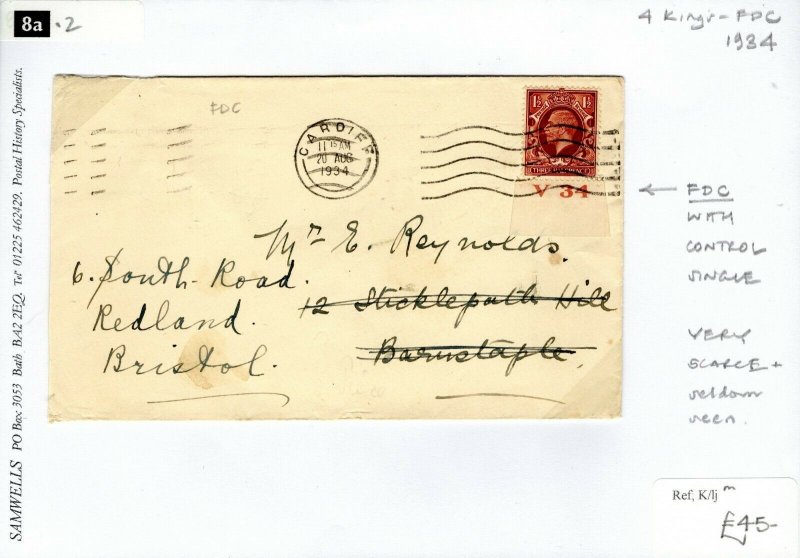 8a .2
4 Kings - FDC
1934
FDC
CARDIFF
11 15 AM
20 AUG
1934
1½ 1½
THREE HALFPENCE
V 34
← FDC
WITH
CONTROL
SINGLE
VERY
SCARCE +
seldom
seen.
Mr E. Reynolds.
12 Sticklepath Hill
Barnstaple.
6. South Road.
Redland.
Bristol.
SAMWELLS PO Box 3053 Bath BA2 2EQ. Tel 01225 462429. Postal History Specialists.
Ref, K/lj m
£45-